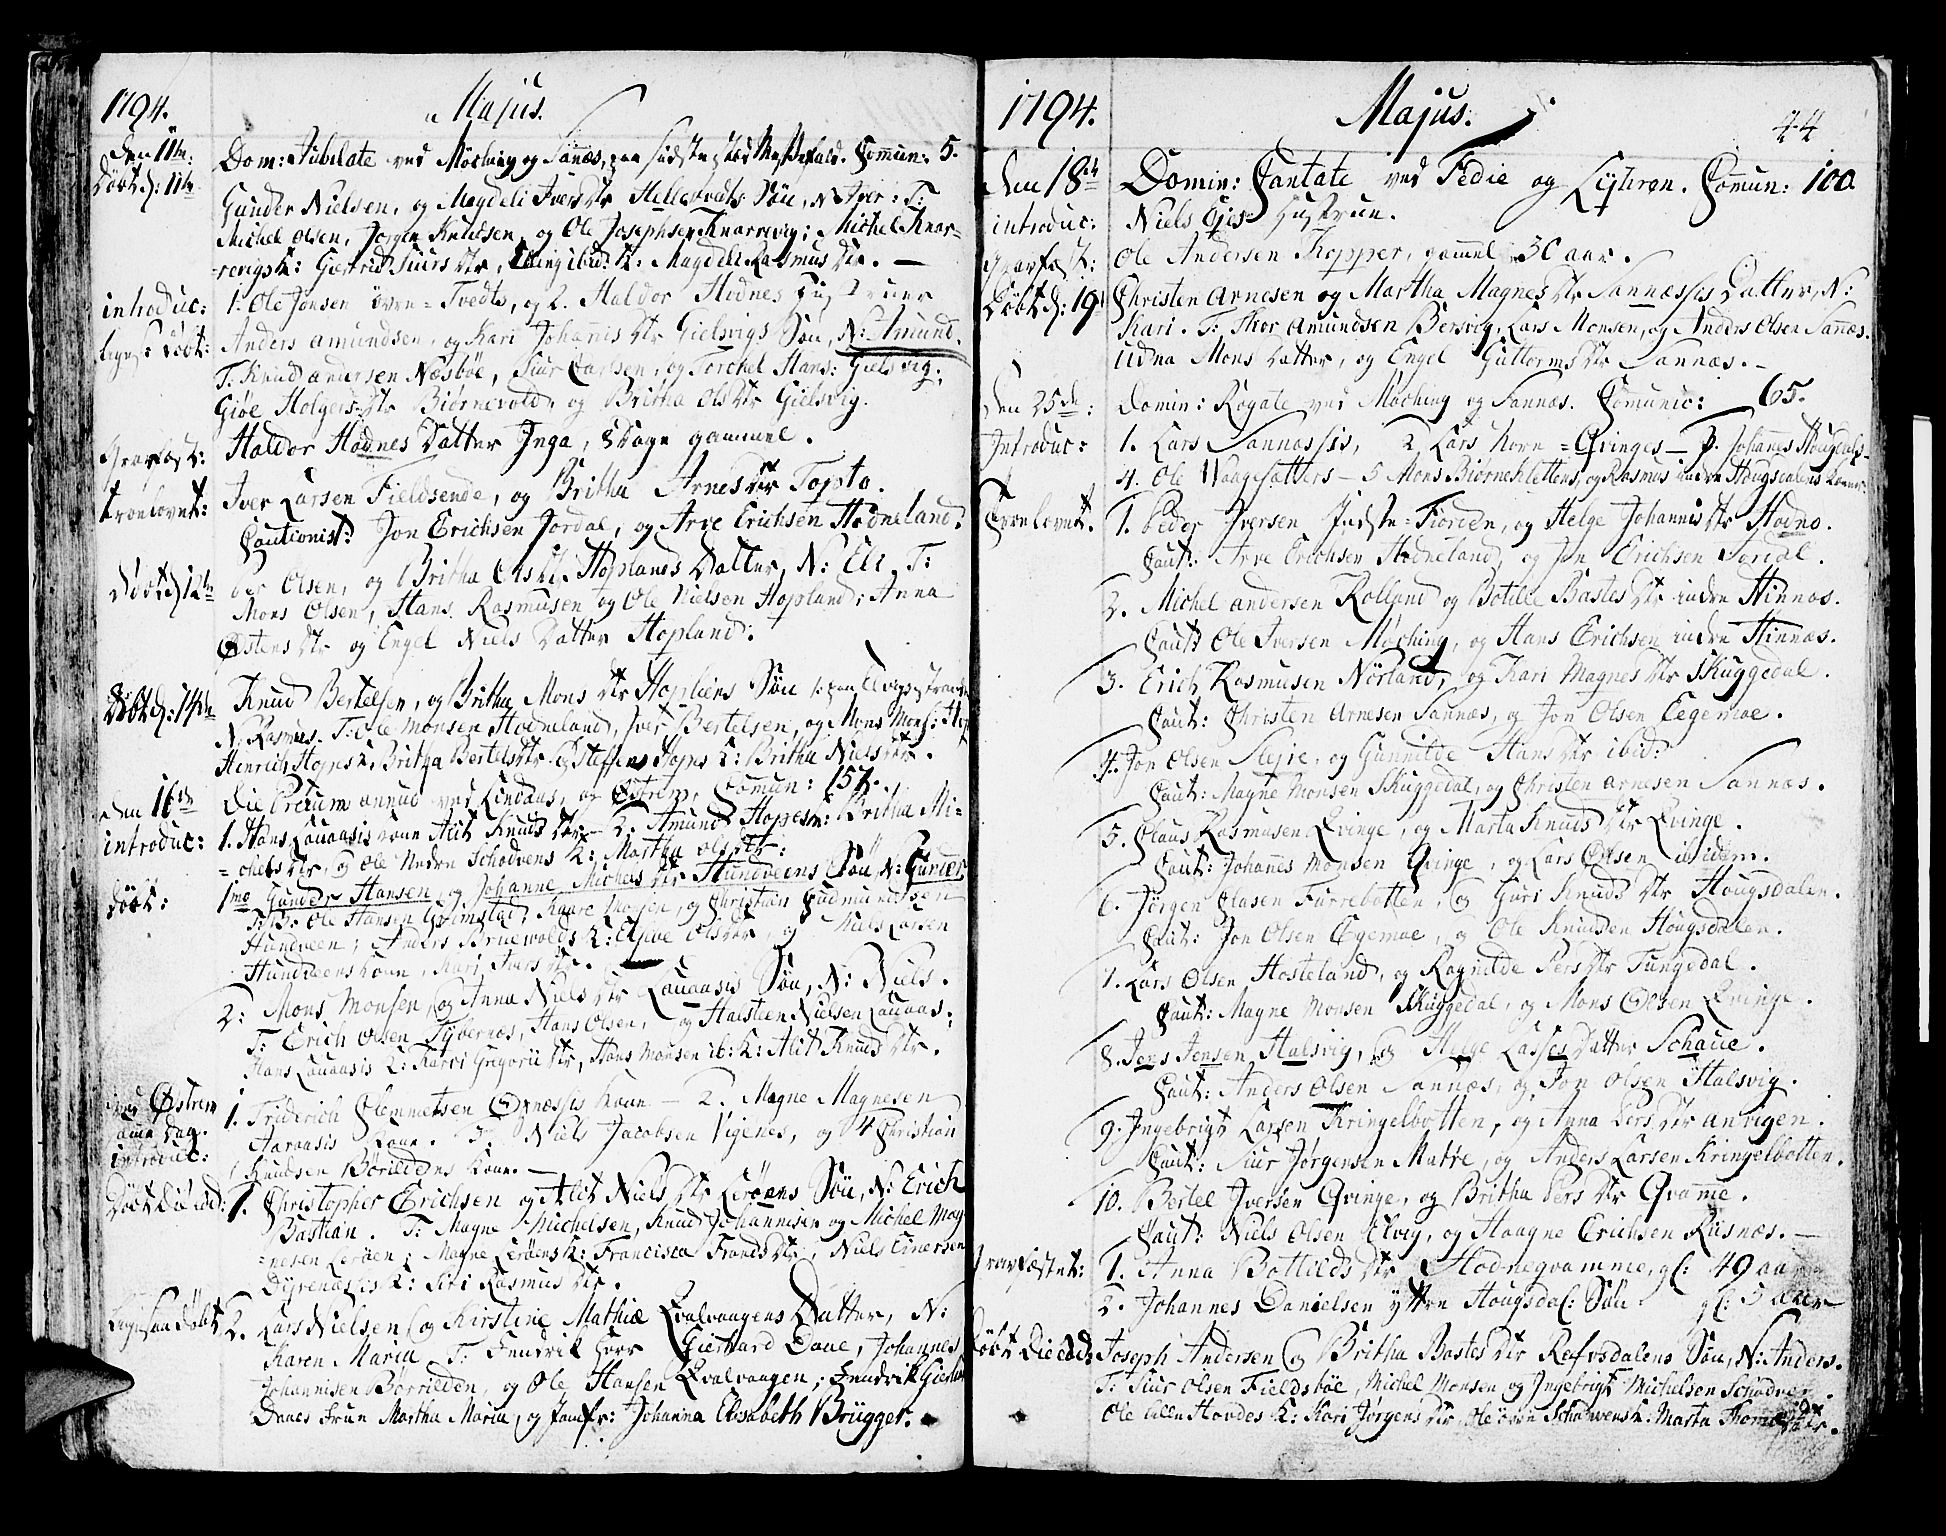 1794. Majus.
den 11te Dom: Jubilate ved Møching og Sannæs, paa sidste stæd Commun: 5.
Døbt d: 11te Gunder Nielsen, og Magdeli Ivers Dtr Hellesvads Søn, N: Iver: T:
Michel Olsen, Jørgen Knudsen, og Ole Josephsen Knarrevig; Michel Knar-
=revigs K: Giertrud Siurs Dtr, ibid: K: Magdeli Rasmus Dtr. —
introduc: 1. Ole Jonsen øvre=Tvedts, og 2. Haldor Hodnes Hustruer
Døbt: Anders Amundsen, og Kari Johannis Dtr Gielsvigs Søn, N: Amund.
T: Knud Andersen Næsbøe, Siur Larsen, og Torchel Hans: Gielsvig;
Giøe Holgers Dtr Biørnevold, og Britha Ols Dtr Gielsvig.
Gravfæst: Haldor Hodnes Datter Inga, 8 Dage gammel.
troelovet: Iver Larsen Fieldsende, og Britha Arnes Dtr Topta.
Cautionist: Jon Erichsen Jordal, og Arve Erichsen Hodneland.
Døbt d 12te Per Olsen, og Britha Hoplands Datter, N: Eli. T:
Mons Olsen, Hans Rasmusen og Ole Nielsen Hopland; Anna
Østens Dtr og Engel Niels Datter Hopland.
Døbt d: 14de Knud Bertelsen, og Britha Mons Dtr Hopliens Søn
N: Rasmus. T: Ole Monsen Hodneland, Iver Bertelsen, og Mons Mons:
Hinrich Hopes K: Britha Bertels Dtr og Steffens Hopes K: Britha Niels Dtr.
den 16de Die Precum annuo ved Lindaas, og Østrem, Commun: 157.
introduc: 1. Hans Lauaasis Kone Alit Knuds Dtr — 2. Amund Hopes K: Britha Mi-
=chels Dtr, og Ole Nedre Schodvens K: Martha Ols Dtr:
Døbt: 1mo Gunder Hansen, og Johanne Michels Dtr Hundveens Søn, N: Gunder
T: Ole Hansen Grimstad, Kaare Monsen, og Christian Gudmundsen
Hundveen; Anders Bruevolds K: Ols Dtr, og Niels Larsen
Hundveens Kone, Kari Ivers Dtr.
2: Mons Monsen, og Anna Niels Dtr Lauaasis Søn, N: Niels.
T: Erich Olsen Fyllernæs, Hans Olsen, og Halsteen Nielsen Lauaas;
Hans Lauaasis K: Kari Gregorii Dtr, Hans Monsen ib: K: Alit Knuds Dtr.
ved Østrem
introduc: 1. Friderich Clemmetsen Kone — 2. Magne Magnesen
Aaraasis Kone. 3. Niels Jacobsen Vigenes, og 4 Christian
Knudsen Børildens Kone. —
Døbt die eod: 1. Christopher Erichsen og Alit Niels Dtr Lerøens Søn, N: Erich
Bastian. T: Magne Michelsen, Knud Johannisen og Michel Mag-
=nesen Lerøen; Magne Lerøens K: Francisca Frands Dtr, Niels Einersen
Dyrenæssis K: Siri Rasmus Dtr.
Døbt 2. Lars Nielsen, og Kirstine Mathiæ Qvalvaagens Datter, N:
Karen Maria T: Hendrik Giert Gierhard Dane, Johannes
Johannisen Børrilden, og Ole Hansen Qvalvaagen; Hendrik Gierhd
Danes Frue Martha Maria, og Jomfr: Johanna Elisabeth Brügger.
1794. Majus. 44
den 18de Domin: Cantate ved Fedie og Lyhren. Commun: 100
introduc: Niels Hustrue.
Gravfæst: Ole Andersen Kopper, gammel 30 aar.
Døbt d: 19 Christen Arnesen og Martha Magnes Dtr Sannæssis Datter, N:
Kari. T: Thor Amundsen Bersvig, Lars Monsen, og Anders Olsen Sannæs.
Udna Mons Datter, og Engel Guttorms Dtr Sannæs. —
den 25de: Domin: Rogate ved Møching og Sannæs. Communic: 65.
Introduc: 1. Lars Sannæssis, 2 Lars Norn=Qvinges — 3. Johannes Hougdals
4. Ole Waagsætters — 5 Mons Biørneklettens, og Rasmus indre Hougsdalens Koner.
Troelovet. 1. Peder Iversen Indste=Fiorden, og Helge Johannis Dtr Hodne.
Caut: Arve Erichsen Hodneland, og Jon Erichsen Jordal.
2. Michel Andersen Rolland og Botille Bastes Dtr indre Hinnæs.
Caut: Ole Iversen Møching, og Hans Erichsen indre Hinnæs.
3. Erich Rasmusen Nørland, og Kari Magnes Dtr Skuggedal.
Caut: Christen Arnesen Sannæs, og Jon Olsen Eegemoe.
4. Jon Olsen Sleire, og Gunnilde Hans Dtr ibid:
Caut: Magne Monsen Skuggedal, og Christen Arnesen Sannæs.
5. Claus Rasmusen Qvinge, og Marta Knuds Dtr Qvinge.
Caut: Johannes Monsen Qvinge, og Lars Olsen ibidem.
6. Jørgen Clasen Furrebotten, og Guri Knuds Dtr Hougsdalen.
Caut: Jon Olsen Egemoe, og Ole Knudsen Hougsdalen.
7. Lars Olsen Hosteland, og Ragnilde Pers Dtr Tungedal.
Caut: Magne Monsen Skuggedal, og Mons Olsen Qvinge.
8. Jens Jensen Halsvig, og Helge Lasses Datter Schaue.
Caut: Anders Olsen Sannæs, og Jon Olsen Halsvig.
9. Ingebrigt Larsen Kringelbotten, og Anna Pers Dtr Anvigen.
Caut: Siur Jørgensen Matre, og Anders Larsen Kringelbotten.
10. Bertel Iversen Qvinge, og Britha Pers Dtr Qvamme.
Caut: Niels Olsen Elvig, og Haagne Erichsen Risnæs. —
Gravfæstet: 1. Anna Bottilds Dtr Hodneqvamme, gl: 49 aar
2. Johannes Danielsen yttre Hougsdal: Søn gl: 5 aar
Døbt Die eod: Joseph Andersen og Britha Bastes Dtr Refsdalens Søn, N: Anders.
T: Siur Olsen Fieldsbøe, Michel Monsen og Ingebrigt Michelsen Schodven.
Ole Hovdes K: Kari Jørgens Dtr, Ole øvre Schodvens K: Marta Thomes Dtr.